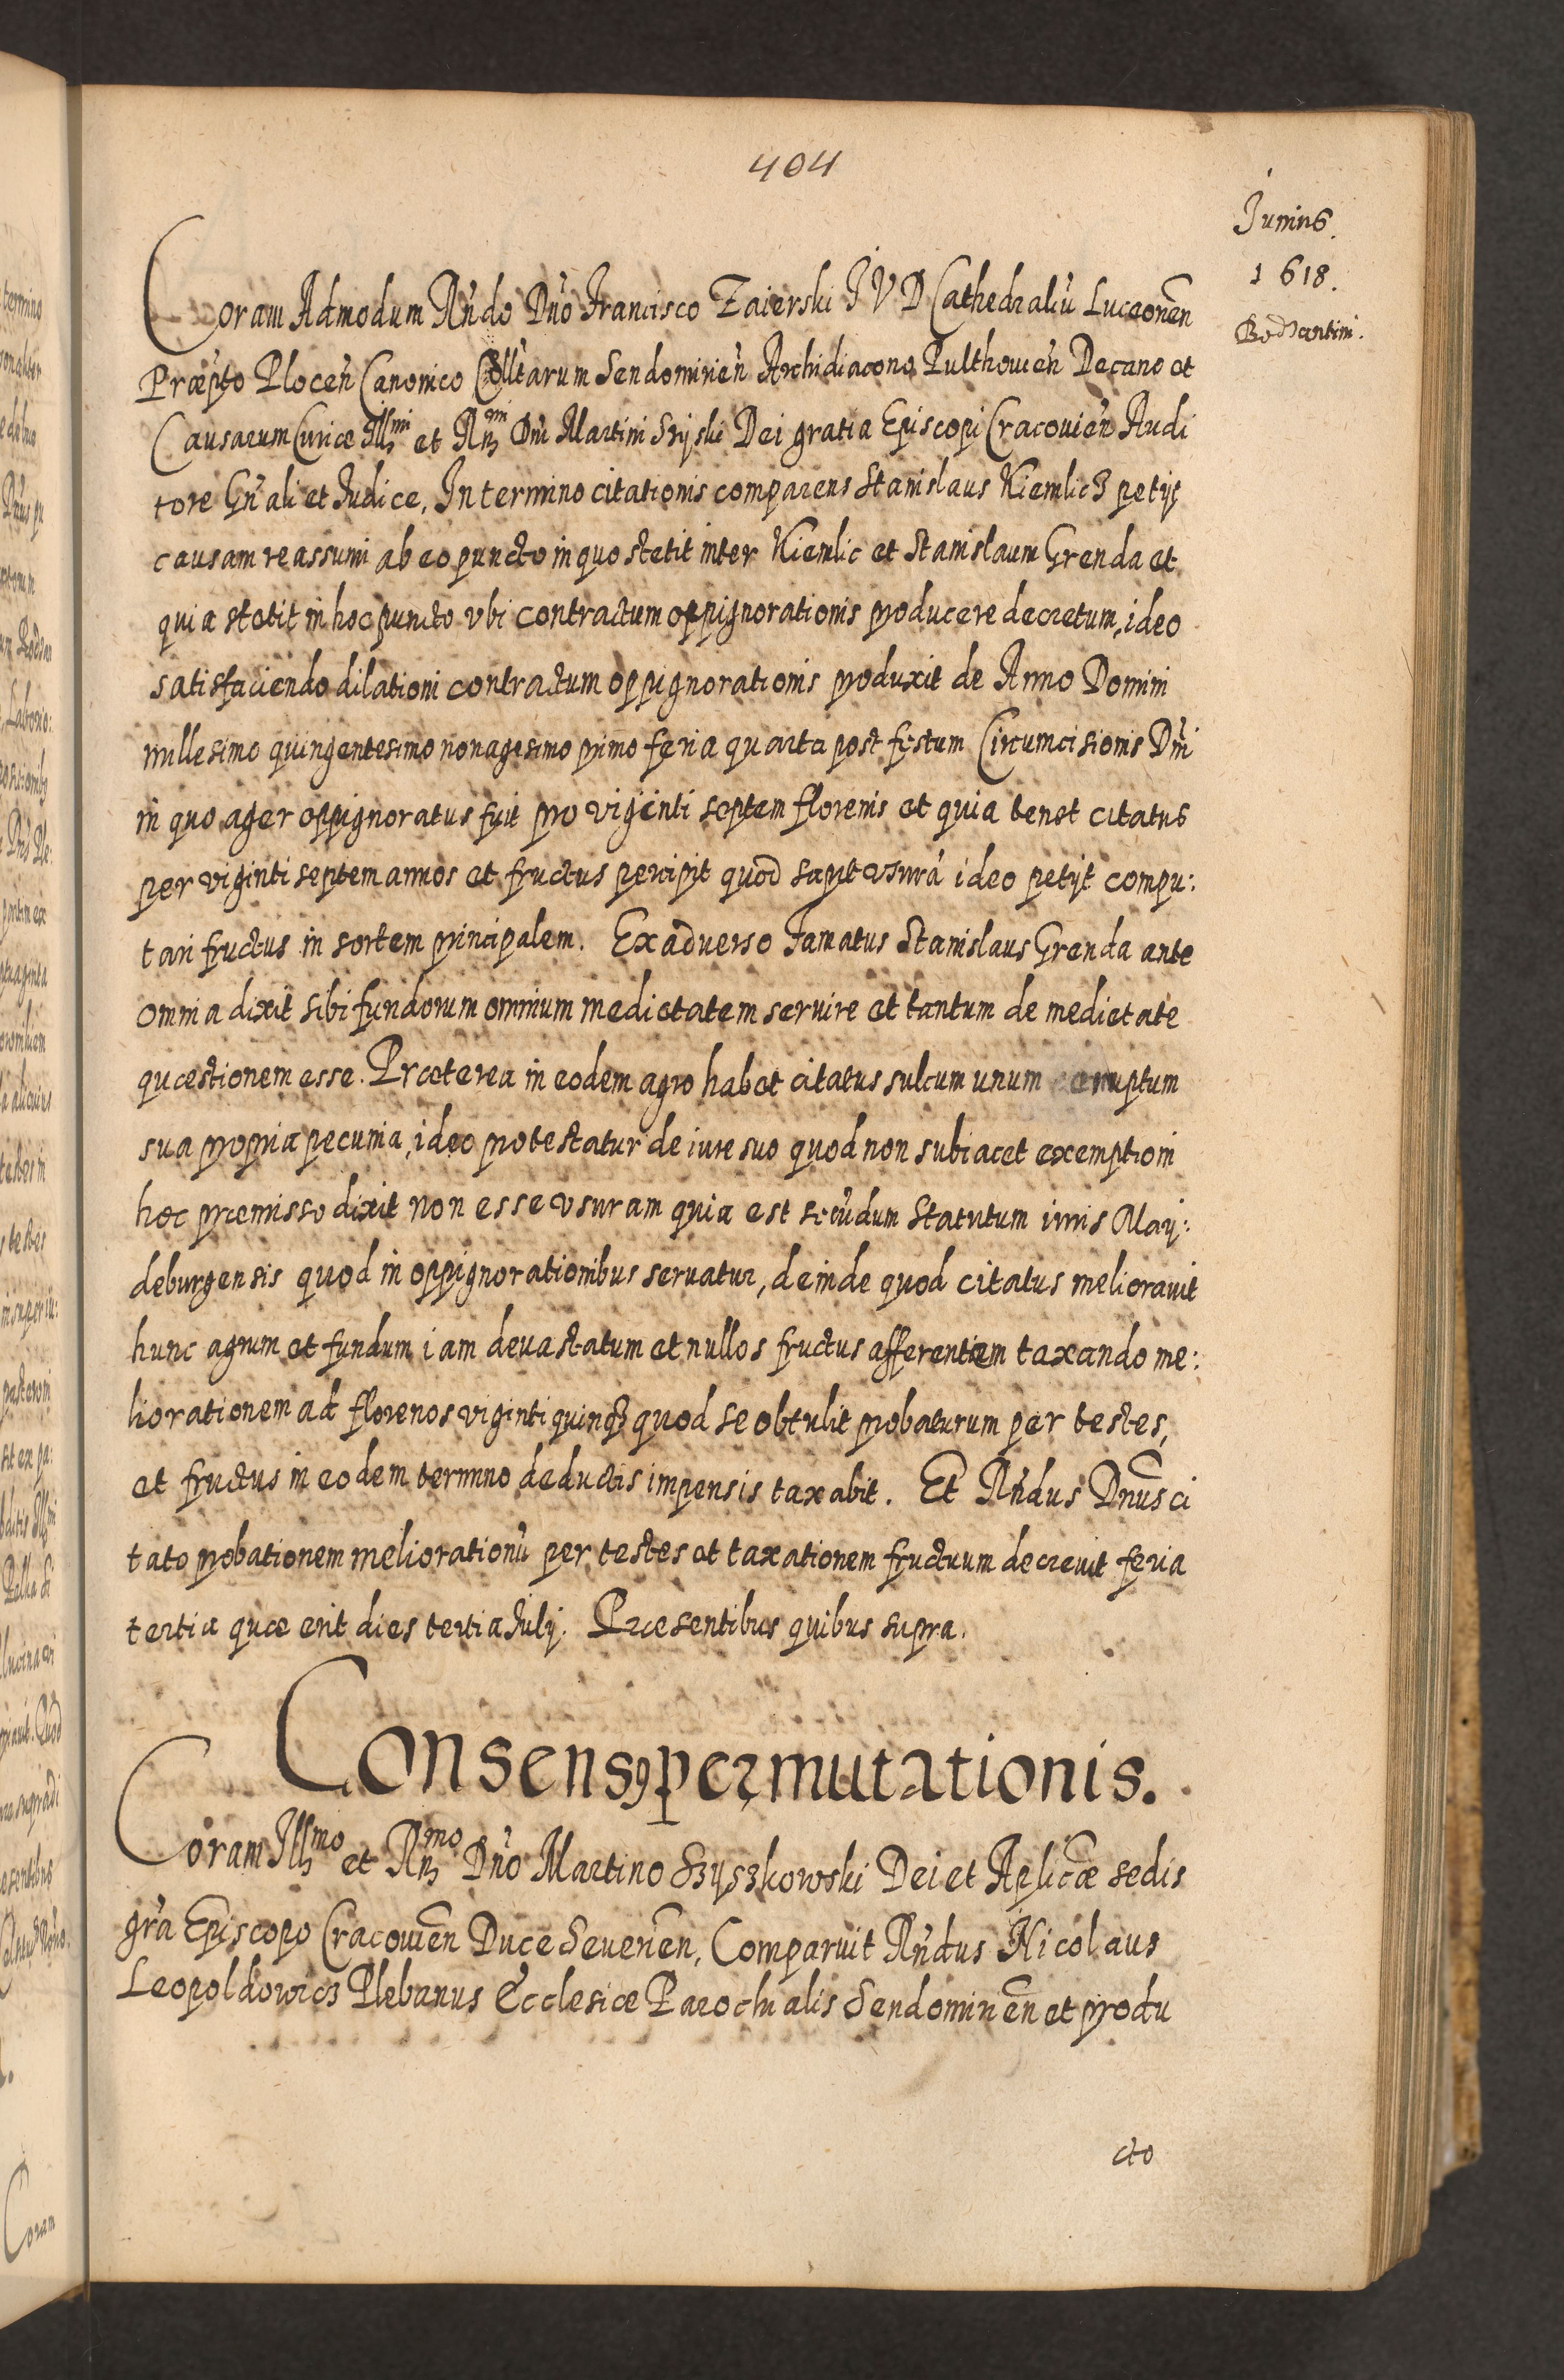 404
Junius.
1618.
Bodzantini.
Coram Admodum Rńdo Dńo Francisco Zaierski J V D Cathedraliū Luceonēn
Præpto Plocen̄ Canonico Collt̄arum Sendomirien̄ Archidiacono Pulthovien̄ Decano et
Causarum Curiæ Illmi et Rmi Dńi Martini Szyski Dei gratia Episcopi Cracovien̄ Audi
tore Gn̄ali et Judice, In termino citationis comparens Stanislaus Kiemlicz petijt
causam reassumi ab eo puncto in quo stetit inter Kiemlic et Stanislaum Grenda et
quia stetit in hoc puncto vbi contractum oppignorationis producere decretum, ideo
satisfaciendo dilationi contractum oppignorationis produxit de Anno Domini
millesimo quingentesimo nonagesimo primo feria quarta post festum Circumcisionis Dn̄i
in quo ager oppignoratus fuit pro viginti septem florenis et quia tenet citatus
per viginti septem annos et fructus percipit quod sapit vsurā ideo petijt compu:
tari fructus in sortem principalem. Ex adverso Famatus Stanislaus Grenda ante
omnia dixit sibi fundorum omnium medietatem servire et tantum de medietate
quæstionem esse. Præterea in eodem agro habet citatus sulcum unum emptum
sua propria pecunia, ideo protestatur de iure suo quod non subiacet exemptioni
hoc præmisso dixit non esse vsuram quia est secūdum Statutum iuris May:
deburgensis quod in oppignorationibus servatur, deinde quod citatus melioravit
hunc agrum et fundum iam devastatum et nullos fructus afferentem taxando me:
liorationem ad florenos viginti quinqȝ quod se obtulit probaturum per testes,
et fructus in eodem termino deductis impensis taxabit. Et Rńdus Dn̄us ci
tato probationem meliorationū per testes et taxationem fructuum decrevit feria
tertia quæ erit dies tertia Julij. Præsentibus quibus supra.
Consensꝯ permutationis.
Coram Illmo et Rmo Dńo Martino Szyszkowski Dei et Aplicæ sedis
gr̄a Episcopo Cracoviēn Duce Severiēn, Comparuit Rńdus Nicolaus
Leopoldowicz Plebanus Ecclesiæ Parochialis Sendomiriēn et produ
cto